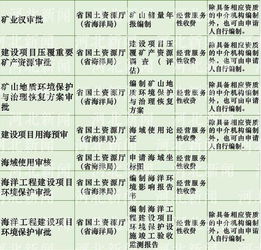 矿业权审批
省国土资源厅
(省海洋局)
矿山储量年
报编制
经营服务
性收费
除具备相应资质
的中介机构编制
外，也可由申请
人自行编制。
建设项目压覆重要
矿产资源审批
省国土资源厅
(省海洋局)
建设项目压
覆矿产资源
调查（评
估）
经营服务
性收费
除具备相应资质
的中介机构编制
外，也可由申请
人自行编制。
矿山地质环境保护
与治理恢复方案审
批
省国土资源厅
(省海洋局)
编制矿山地
质环境保护
与治理恢复
方案
经营服务
性收费
除具备相应资质
的中介机构编制
外，也可由申请
人自行编制。
建设项目用海预审
省国土资源厅
(省海洋局)
海域使用论
证
经营服务
性收费
除具备相应资质
的中介机构编制
外，也可由申请
人自行编制。
海域使用审核
省国土资源厅
(省海洋局)
申请海域坐
标图
经营服务
性收费
除具备相应资质
的中介机构编制
外，也可由申请
人自行编制。
海洋工程建设项目
环境保护审批
省国土资源厅
(省海洋局)
编制海洋环
境影响报告
书
经营服务
性收费
除具备相应资质
的中介机构编制
外，也可由申请
人自行编制。
海洋工程建设项目
环境保护审批
省国土资源厅
(省海洋局)
编制海洋工
程建设项目
环境保护设
施竣工验收
监测报告
经营服务
性收费
除具备相应资质
的中介机构编制
外，也可由申请
人自行编制。